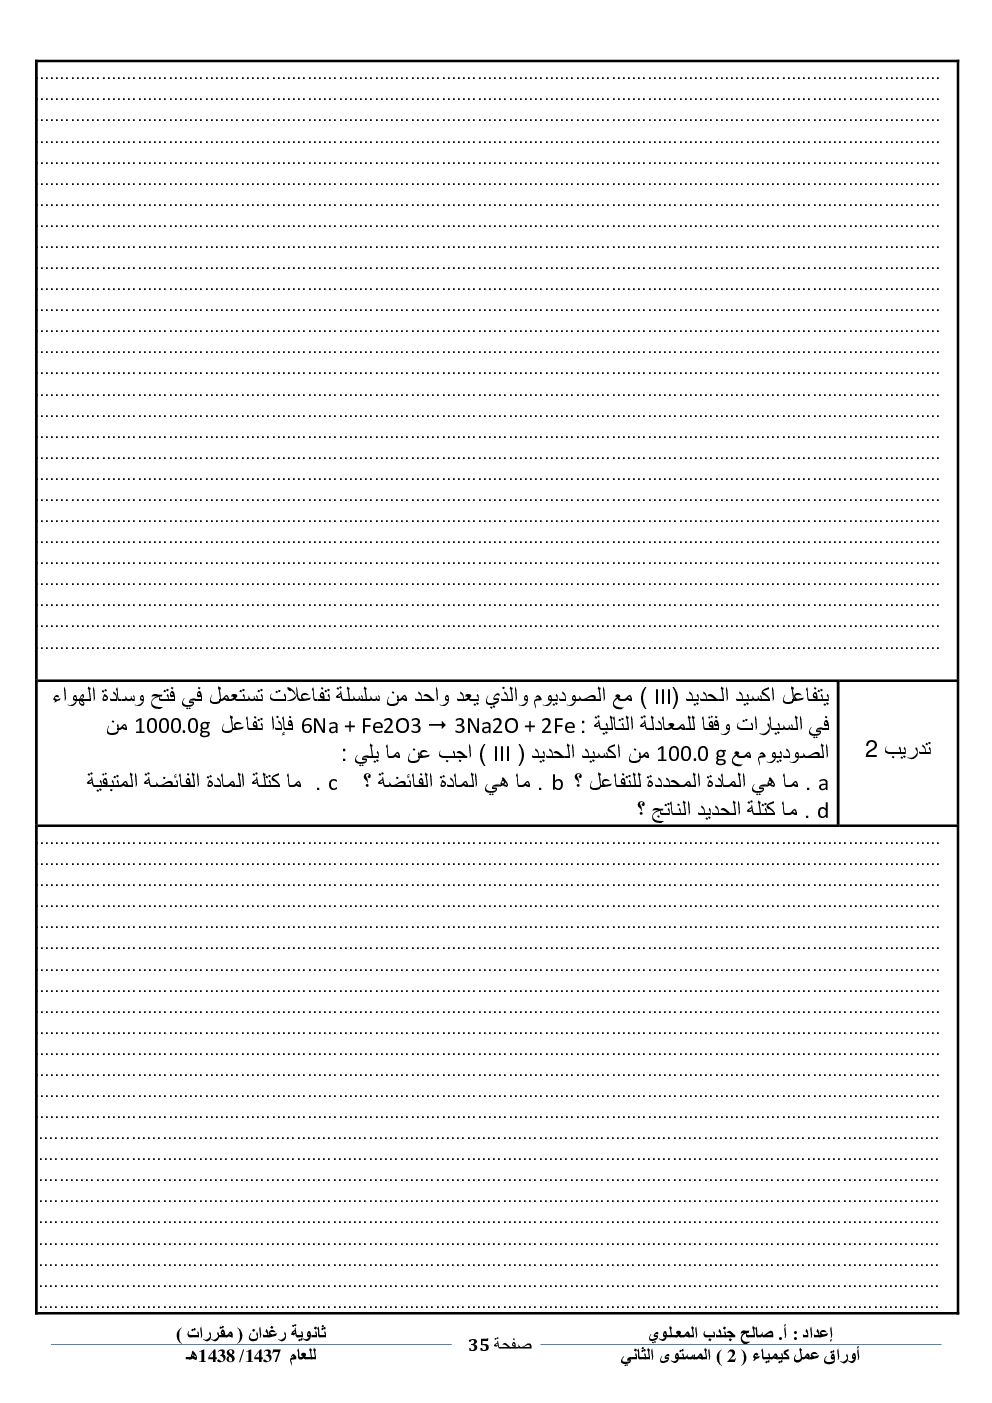 تدريب 2
يتفاعل اكسيد الحديد (III ) مع الصوديوم والذي يعد واحد من سلسلة تفاعلات تستعمل في فتح وسادة الهواء
في السيارات وفقا للمعادلة التالية : 6Na + Fe2O3 → 3Na2O + 2Fe فإذا تفاعل 1000.0g من
الصوديوم مع 100.0 g من اكسيد الحديد ( III ) اجب عن ما يلي :
a . ما هي المادة المحددة للتفاعل ؟ b . ما هي المادة الفائضة ؟ c . ما كتلة المادة الفائضة المتبقية
d . ما كتلة الحديد الناتج ؟
إعداد : أ. صالح جندب المعلوي
أوراق عمل كيمياء ( 2 ) المستوى الثاني
صفحة 35
ثانوية رغدان ( مقررات )
للعام 1437/ 1438هـ